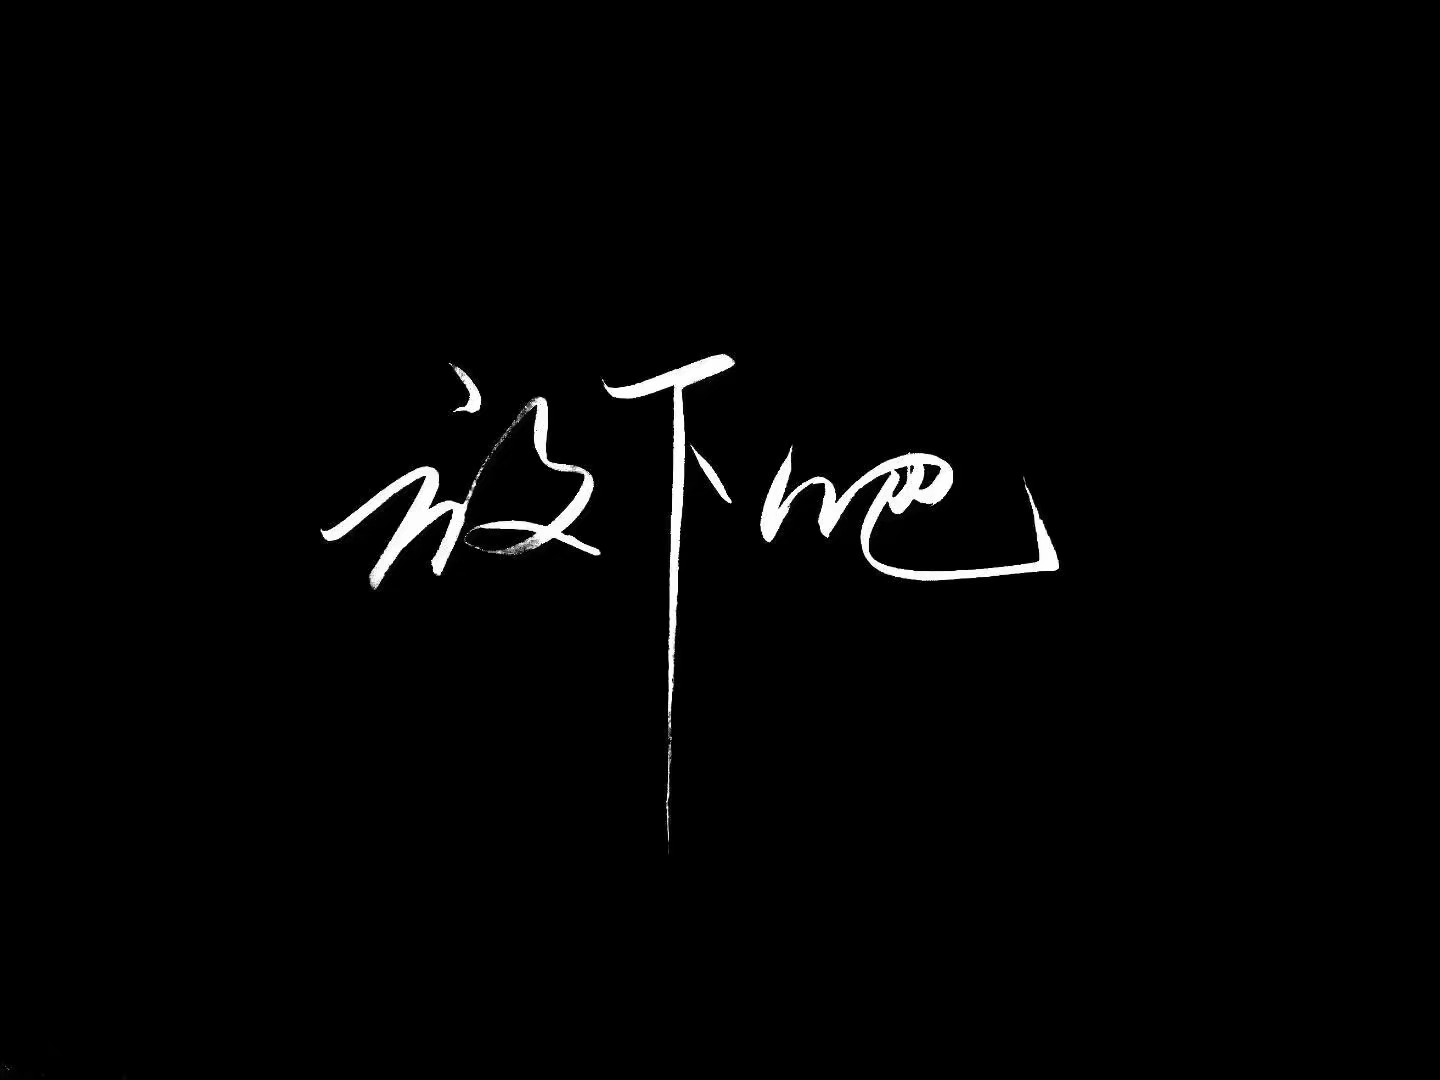 放下吧